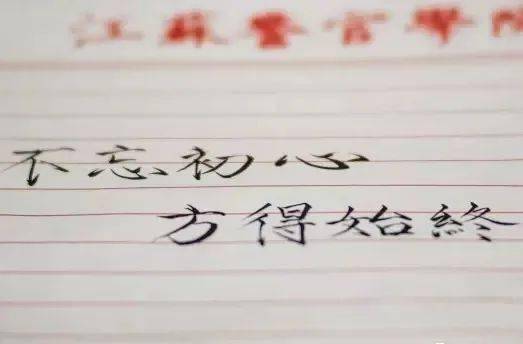 江蘇警官學院
不忘初心
方得始終